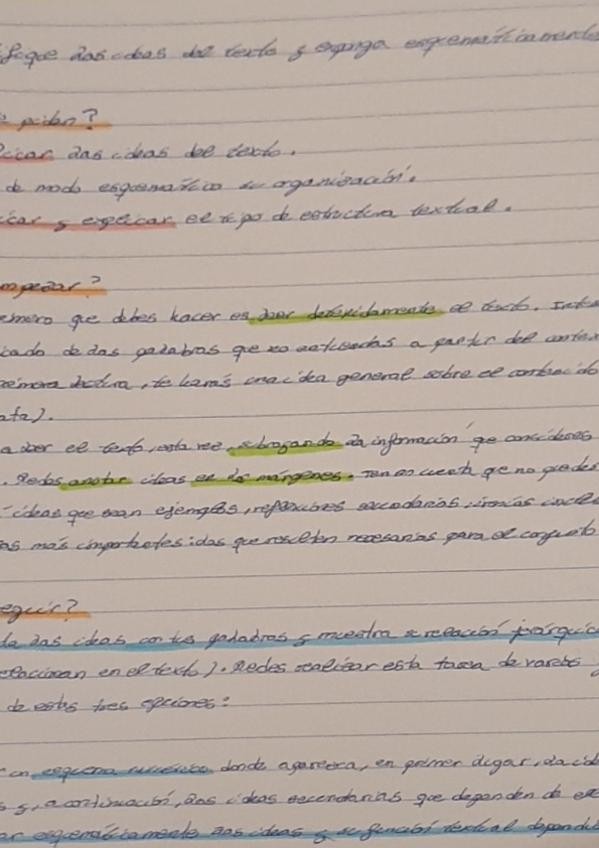 fique las ideas del texto y exponga esquemáticamente
piden?
icar las ideas del texto.
de modo esquemático su organización.
icar y explicar el tipo de estructura textual.
mpezar?
rimero que debes hacer es leer detenidamente el texto. Inten
icado de las palabras que no entiendas a partir del contex
primera lectura, te harás una idea general sobre el contenido
ata).
a leer el texto, esta vez, subrayando la información que consideres
. Puedes anotar ideas en los márgenes. Ten en cuenta que no puedes
ideas que sean ejemplos, reflexiones secundarias, ironías
as más importantes: las que resulten necesarias para el conjunto
eguir?
las ideas con tus palabras y muestra su relación jerárquica
relacionan en el texto). Puedes realizar esta tarea de varias
de estas tres opciones:
un esquema numérico donde aparezca, en primer lugar, la id
s y, a continuación, las ideas secundarias que dependen de
ar esquemáticamente las ideas y su función textual